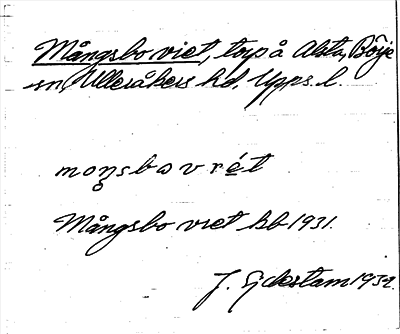 Mångsbo vret, torp å Alsta, Börje
sn, Ulleråkers hd. Upps. l.
mongsbo vrét
Mångsbo vret Bb 1931.
J. Ejdestam 1932.